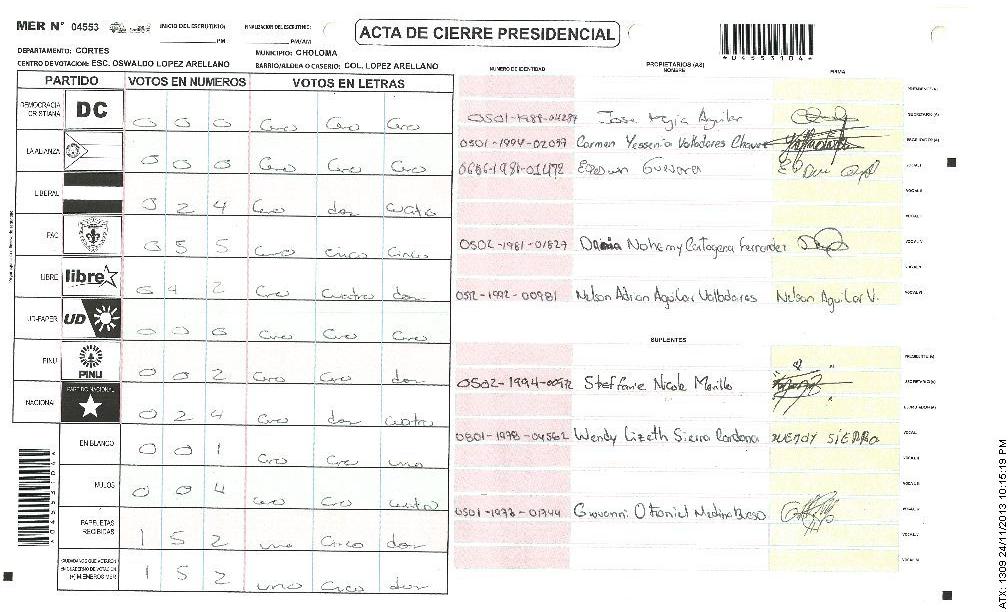 MER N° 04553 INICIO DEL ESCRUTINIO: PM FINALIZACION DEL ESCRUTINIO: PM/AM
ACTA DE CIERRE PRESIDENCIAL
DEPARTAMENTO: CORTES MUNICIPIO: CHOLOMA
CENTRO DE VOTACION: ESC. OSWALDO LOPEZ ARELLANO BARRIO/ALDEA O CASERIO: COL. LOPEZ ARELLANO
PARTIDO VOTOS EN NUMEROS VOTOS EN LETRAS
DEMOCRACIA CRISTIANA DC 0 0 0 Cero Cero Cero
LA ALIANZA 0 0 0 Cero Cero Cero
LIBERAL 0 2 4 Cero dos cuatro
PAC 0 5 5 Cero cinco Cinco
LIBRE libre 0 4 2 Cero Cuatro dos
UD-FAPER UD 0 0 0 Cero Cero Cero
PINU PINU 0 0 2 Cero Cero dos
NACIONAL PARTIDO NACIONAL 0 2 4 Cero dos cuatro
EN BLANCO 0 0 1 Cero Cero uno
NULOS 0 0 4 Cero Cero cuatro
PAPELETAS RECIBIDAS 1 5 2 uno Cinco dos
CIUDADANOS QUE VOTARON EN CUADERNO DE VOTACION (+) MIEMBROS MER 1 5 2 uno Cinco dos
*04553104*
NUMERO DE IDENTIDAD PROPIETARIOS (AS) NOMBRE FIRMA
PRESIDENTE (A)
0501-1989-04289 Jose Mejia Aguilar SECRETARIO (A)
0501-1994-02097 Carmen Yessenia Valladares Chavez ESCRUTADOR (A)
VOCAL I
VOCAL II
VOCAL III
0502-1981-01827 Dania Nohemy Cartagena Fernandez VOCAL IV
VOCAL V
0512-1992-00981 Nelson Adrian Aguilar Valladares Nelson Aguilar V. VOCAL VI
SUPLENTES
PRESIDENTE (A)
0502-1994-00972 Steffanie Nicole Murillo SECRETARIO (A)
ESCRUTADOR (A)
0801-1978-04562 Wendy Lizeth Sierra Cardona WENDY SIERRA VOCAL I
VOCAL II
VOCAL III
0501-1973-01744 Giovanni Othoniel Medina Bueso VOCAL IV
VOCAL V
VOCAL VI
ATX: 1309 24/11/2013 10:15:19 PM